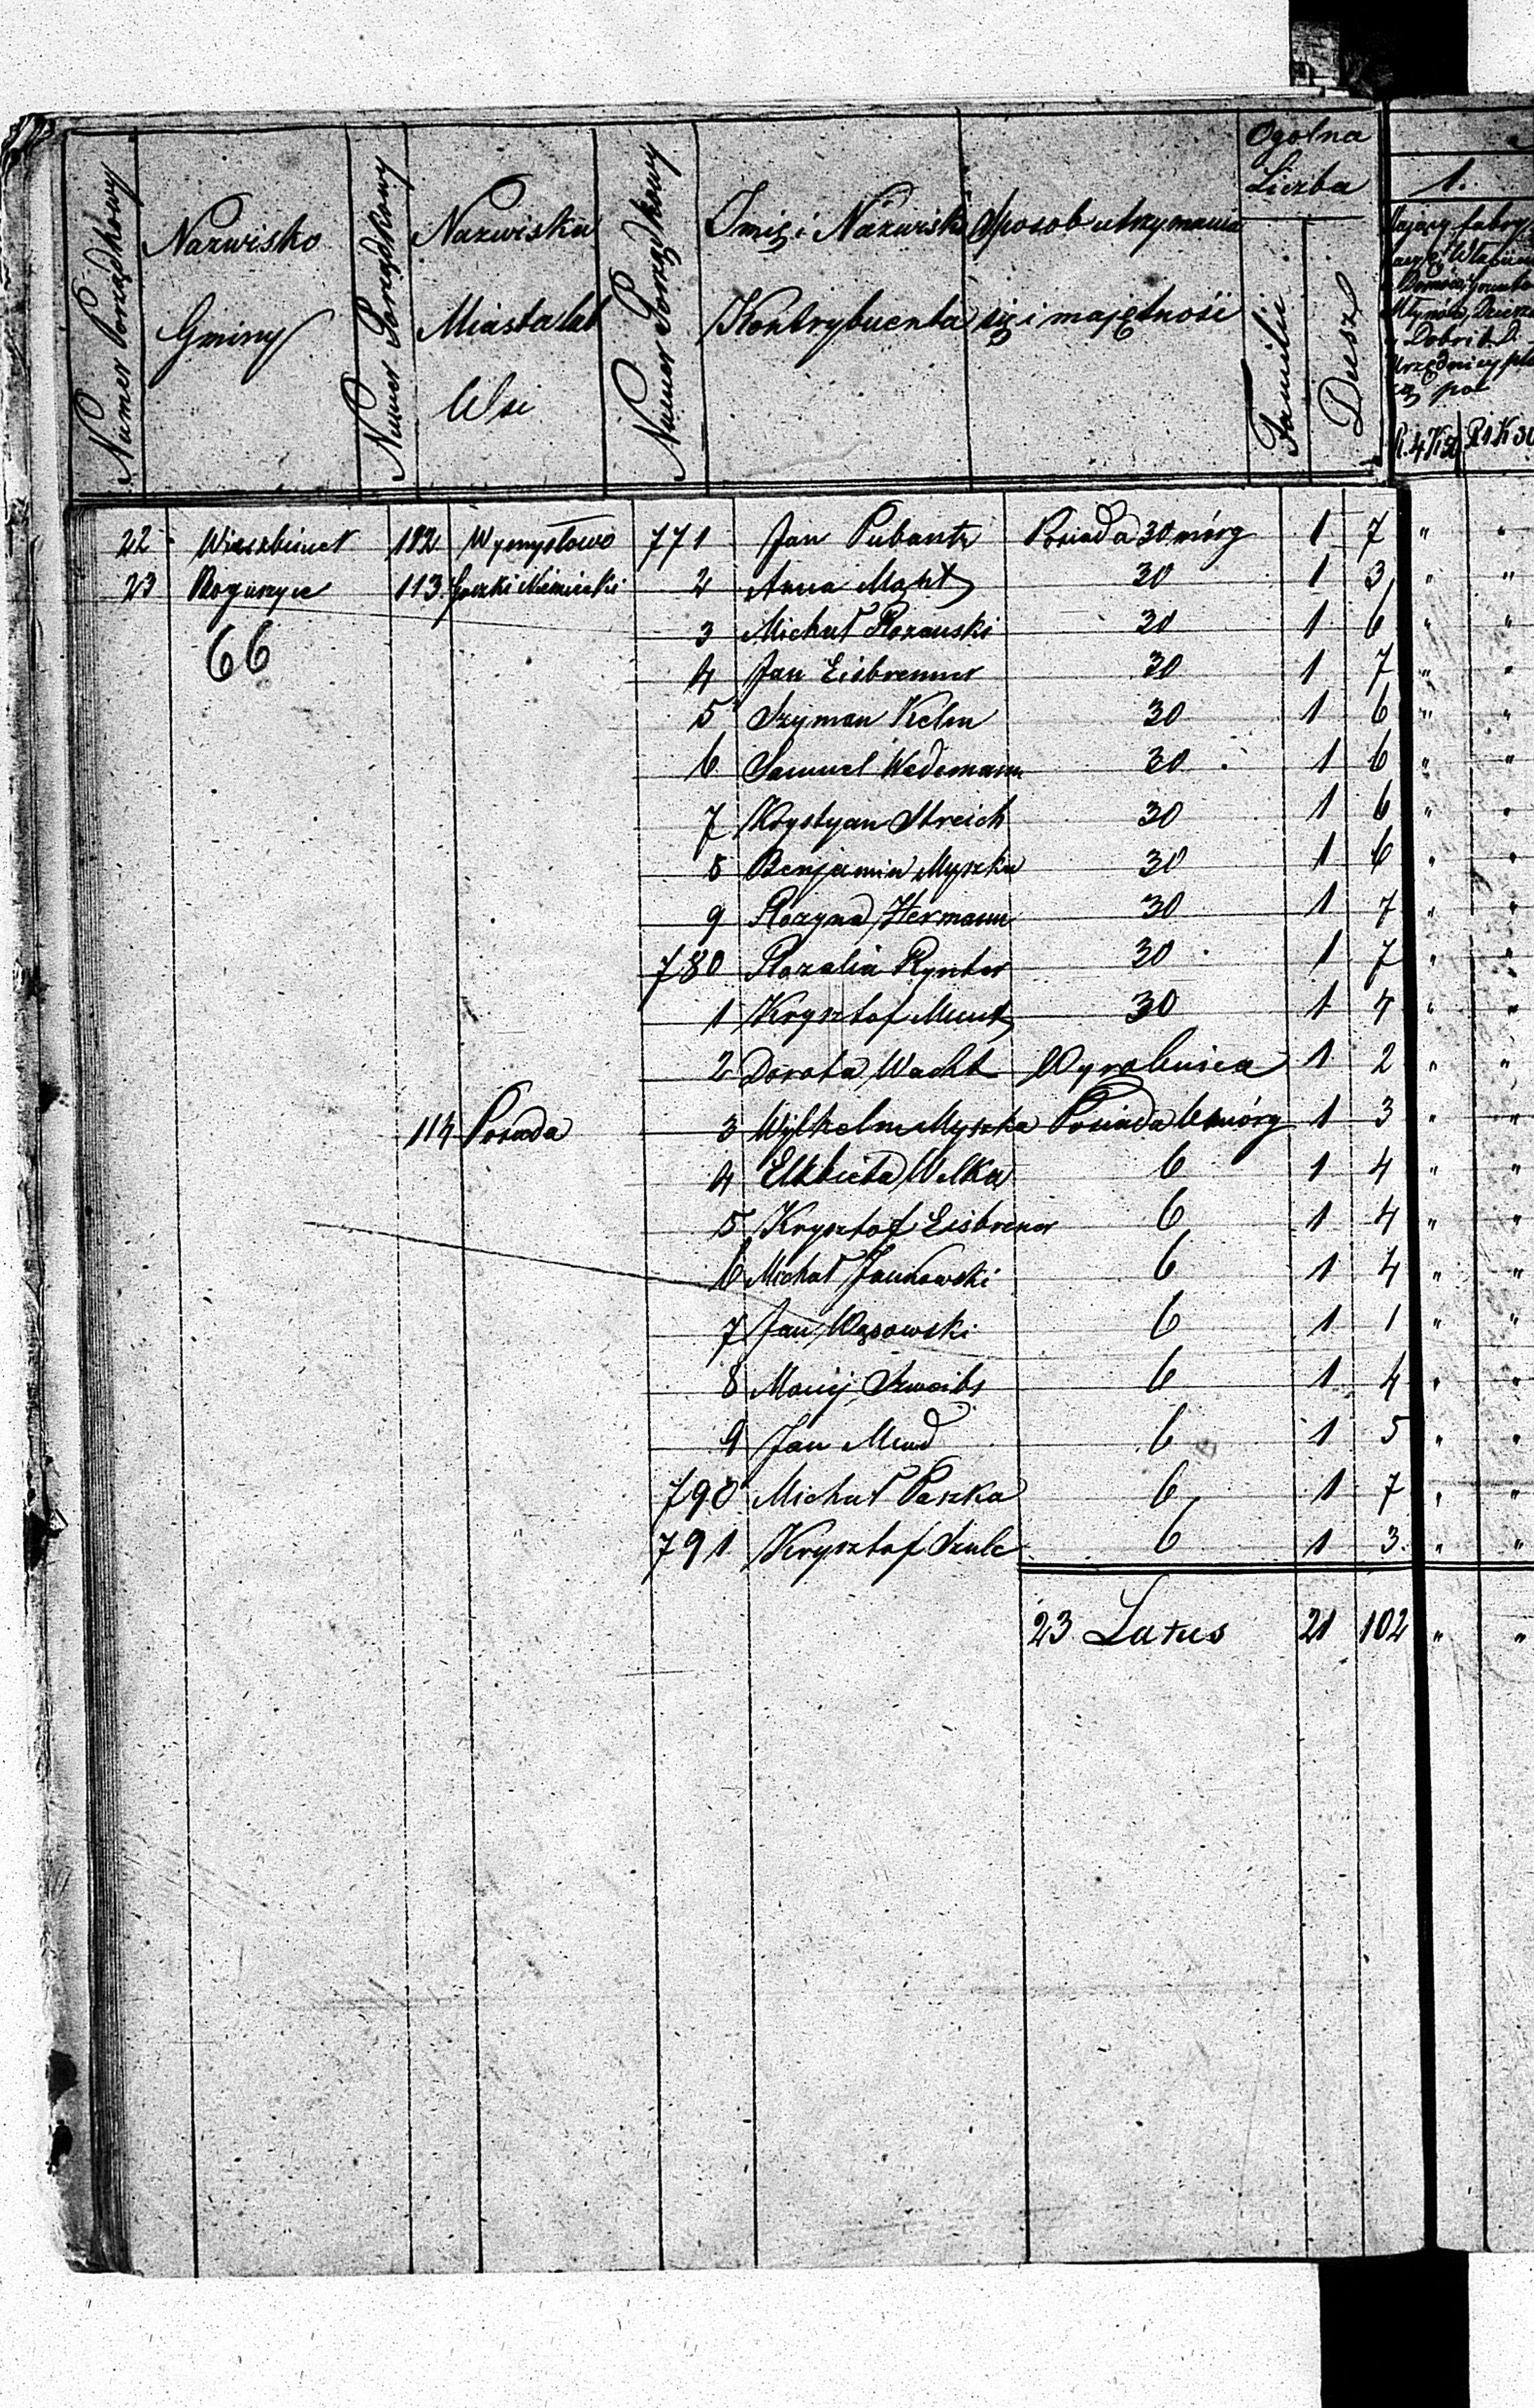 Numer Porządkowy
Nazwisko
Gminy
Numer Porządkowy
Nazwisko
Miasta lub
Wsi
Numer Porządkowy
Imię i Nazwisko
Kontrybuenta
Sposob utrzymania
się i majętności
Ogolna
Liczba
Familii
Dusz
1.
R. 4 K 50 R 1 K 30
22 Wierzbinek 112 Wymysłowo 771 Jan Pubantz Posiada 30 mórg 1 7 " "
23 Roguszyce 113 Goczki Niemieckie 2 Anna Maht 30 1 3 " "
3 Michał Rozanski 30 1 6 " "
66
4 Jan Eisbrenner 30 1 7 " "
5 Szyman Kelm 30 1 6 " "
6 Samuel Wedemann 30 1 6 " "
7 Krystyan Streich 30 1 6 " "
8 Benjamin Myszka 30 1 6 " "
9 Rozyna Hermann 30 1 7 " "
780 Rozalia Rynter 30 1 7 " "
1 Krysztof Munt 30 1 4 " "
2 Dorota Wacht Wyrobnica 1 2 " "
114 Posada 3 Wylhelm Myszka Posiada 6 mórg 1 3 " "
4 Elżbieta Welka 6 1 4 " "
5 Krysztof Eisbrener 6 1 4 " "
6 Michał Jankowski 6 1 4 " "
7 Jan Wąsowski 6 1 1 " "
8 Maciej Szwaibs 6 1 4 " "
9 Jan Mund 6 1 5 " "
790 Michał Paszka 6 1 7 " "
791 Krysztof Szulc 6 1 3 " "
23 Latus 21 102 " "